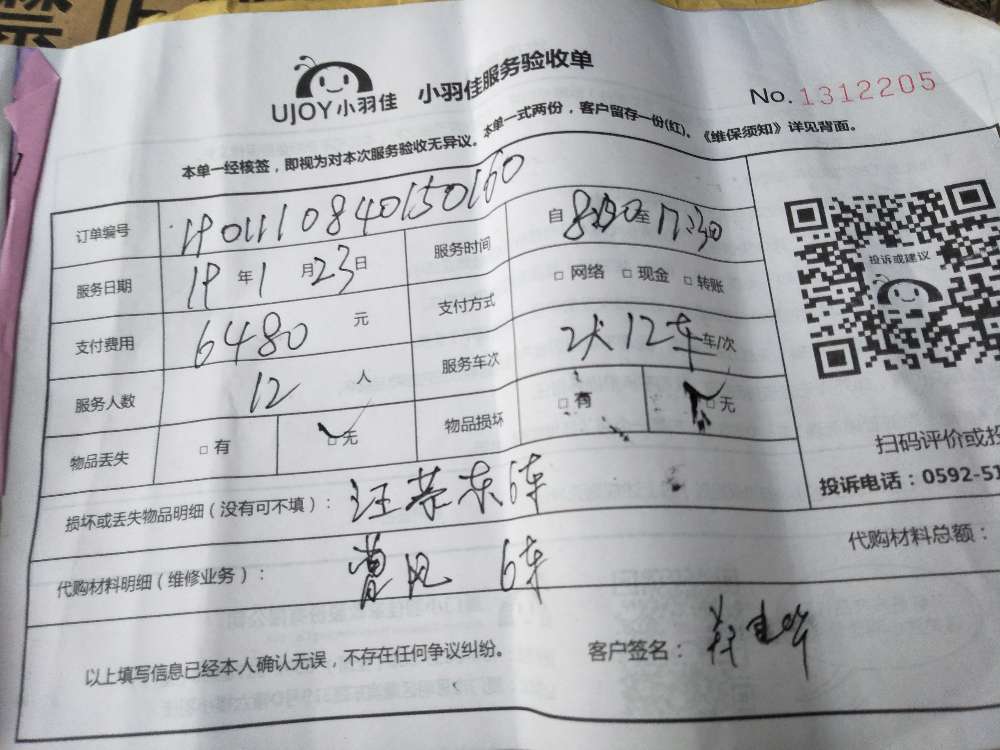 禁止
UJOY小羽佳 小羽佳服务验收单
No.1312205
本单一经核签，即视为对本次服务验收无异议。本单一式两份，客户留存一份(红)。《维保须知》详见背面。
订单编号 1901110840150160
服务日期 19年1月23日 服务时间 自8:30至17:30
支付费用 6480元 支付方式 □网络 □现金 □转账
服务人数 12人 服务车次 2天12车车/次
物品丢失 □有 ☑无 物品损坏 □有 ☑无
投诉或建议
扫码评价或投
投诉电话：0592-51
损坏或丢失物品明细（没有可不填）： 汪荣东6车
代购材料明细（维修业务）： 6车
代购材料总额：
以上填写信息已经本人确认无误，不存在任何争议纠纷。 客户签名：